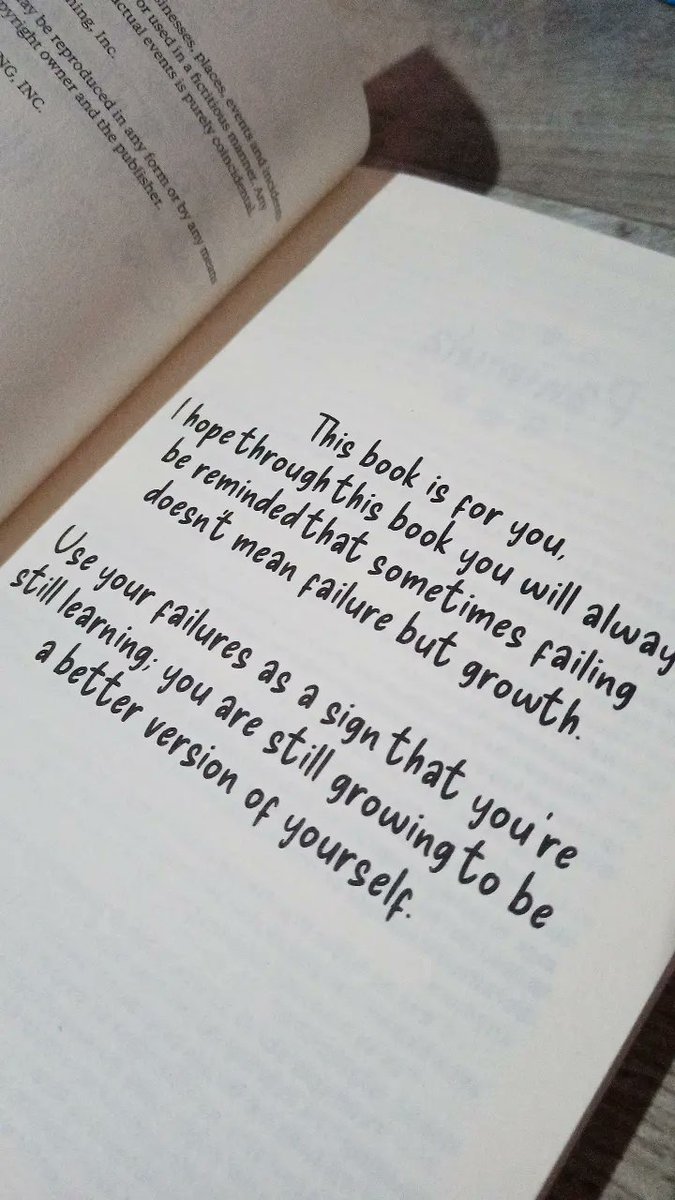 inesses, places, events and incidents
or used in a fictitious manner. Any
actual events is purely coincidental.
ning, Inc.
may be reproduced in any form or by any means
pyright owner and the publisher.
NG, INC.
This book is for you,
I hope through this book you will alway
be reminded that sometimes failing
doesn't mean failure but growth.
Use your failures as a sign that you're
still learning; you are still growing to be
a better version of yourself.